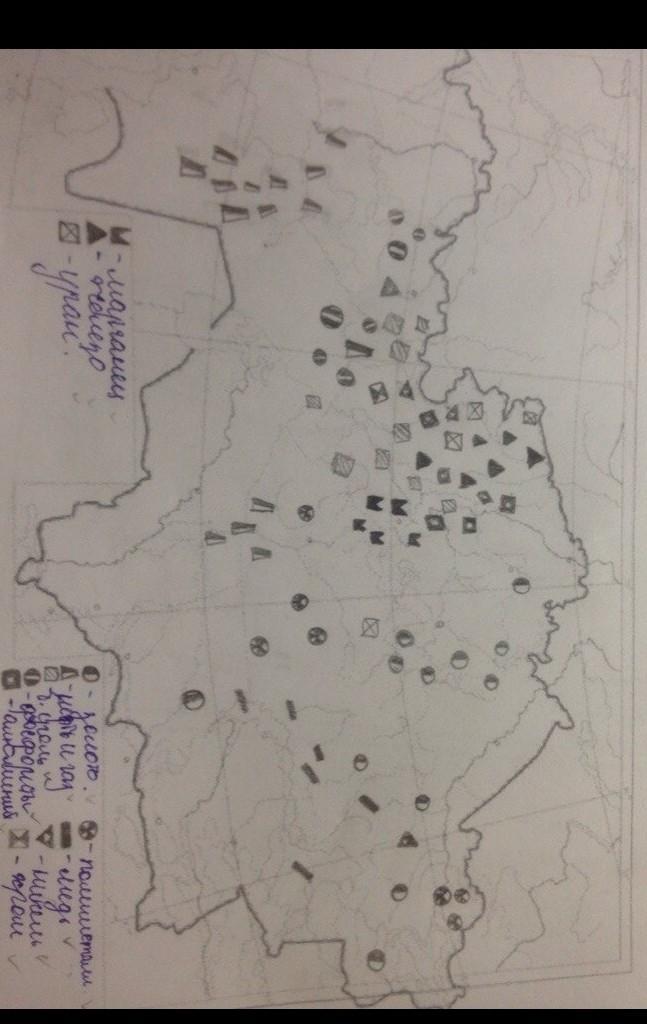 - марганец
- железо
- уран.
- золото.
- нефть и газ
- б. уголь
- фосфориты
- алюминий
- полиметаллы.
- медь
- никель
- хром